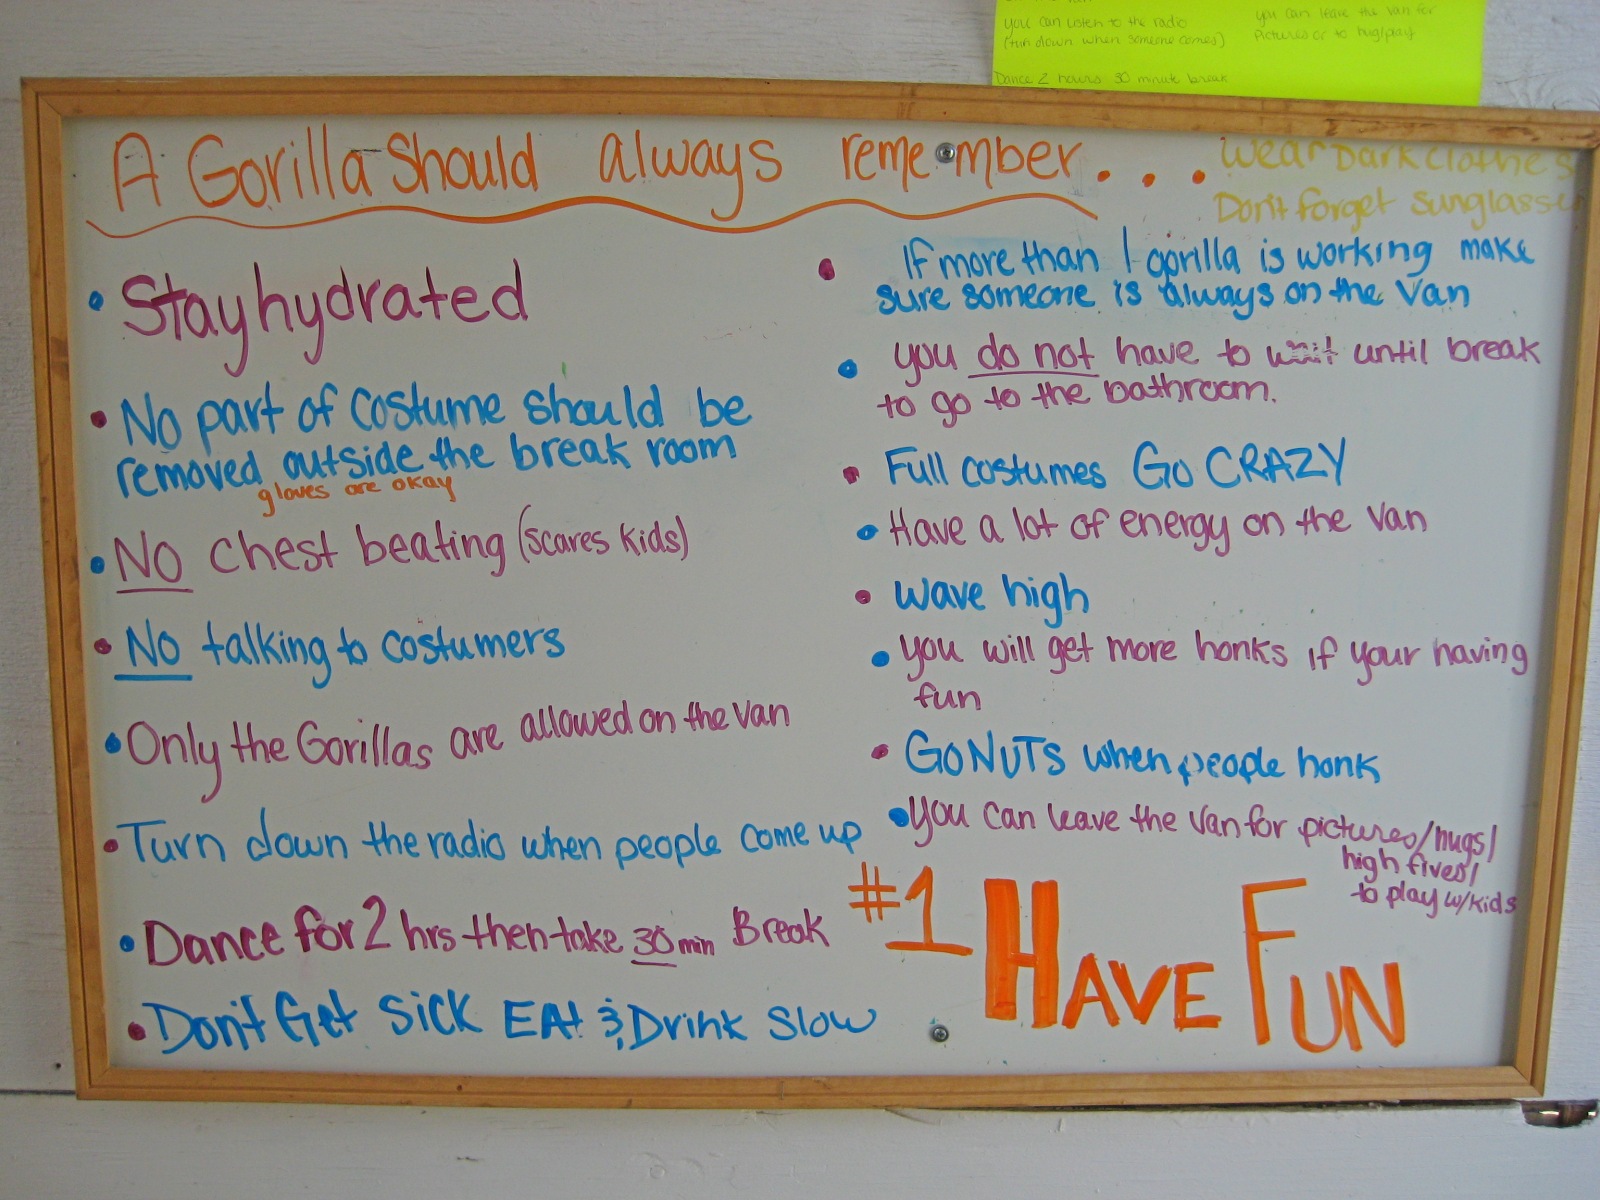 you can listen to the radio
(turn down when someone comes)
Dance 2 hours 30 minute break
you can leave the van for
pictures or to hug/play
A Gorilla Should always remember...
Wear Dark clothes
Don't forget Sunglasses
• Stay hydrated
• No part of costume should be
removed outside the break room
gloves are okay
• NO chest beating (scares kids)
• NO talking to costumers
• Only the Gorillas are allowed on the Van
• Turn down the radio when people come up
• Dance for 2 hrs then take 30 min Break
• Don't Get Sick EAt & Drink Slow
• If more than 1 gorilla is working make
sure someone is always on the Van
• you do not have to wait until break
to go to the bathroom.
• Full costumes GO CRAZY
• Have a lot of energy on the Van
• wave high
• you will get more honks if your having
fun
• GO NUTS when people honk
• you can leave the Van for pictures/hugs/
high fives/
to play w/kids
#1 HAVE FUN